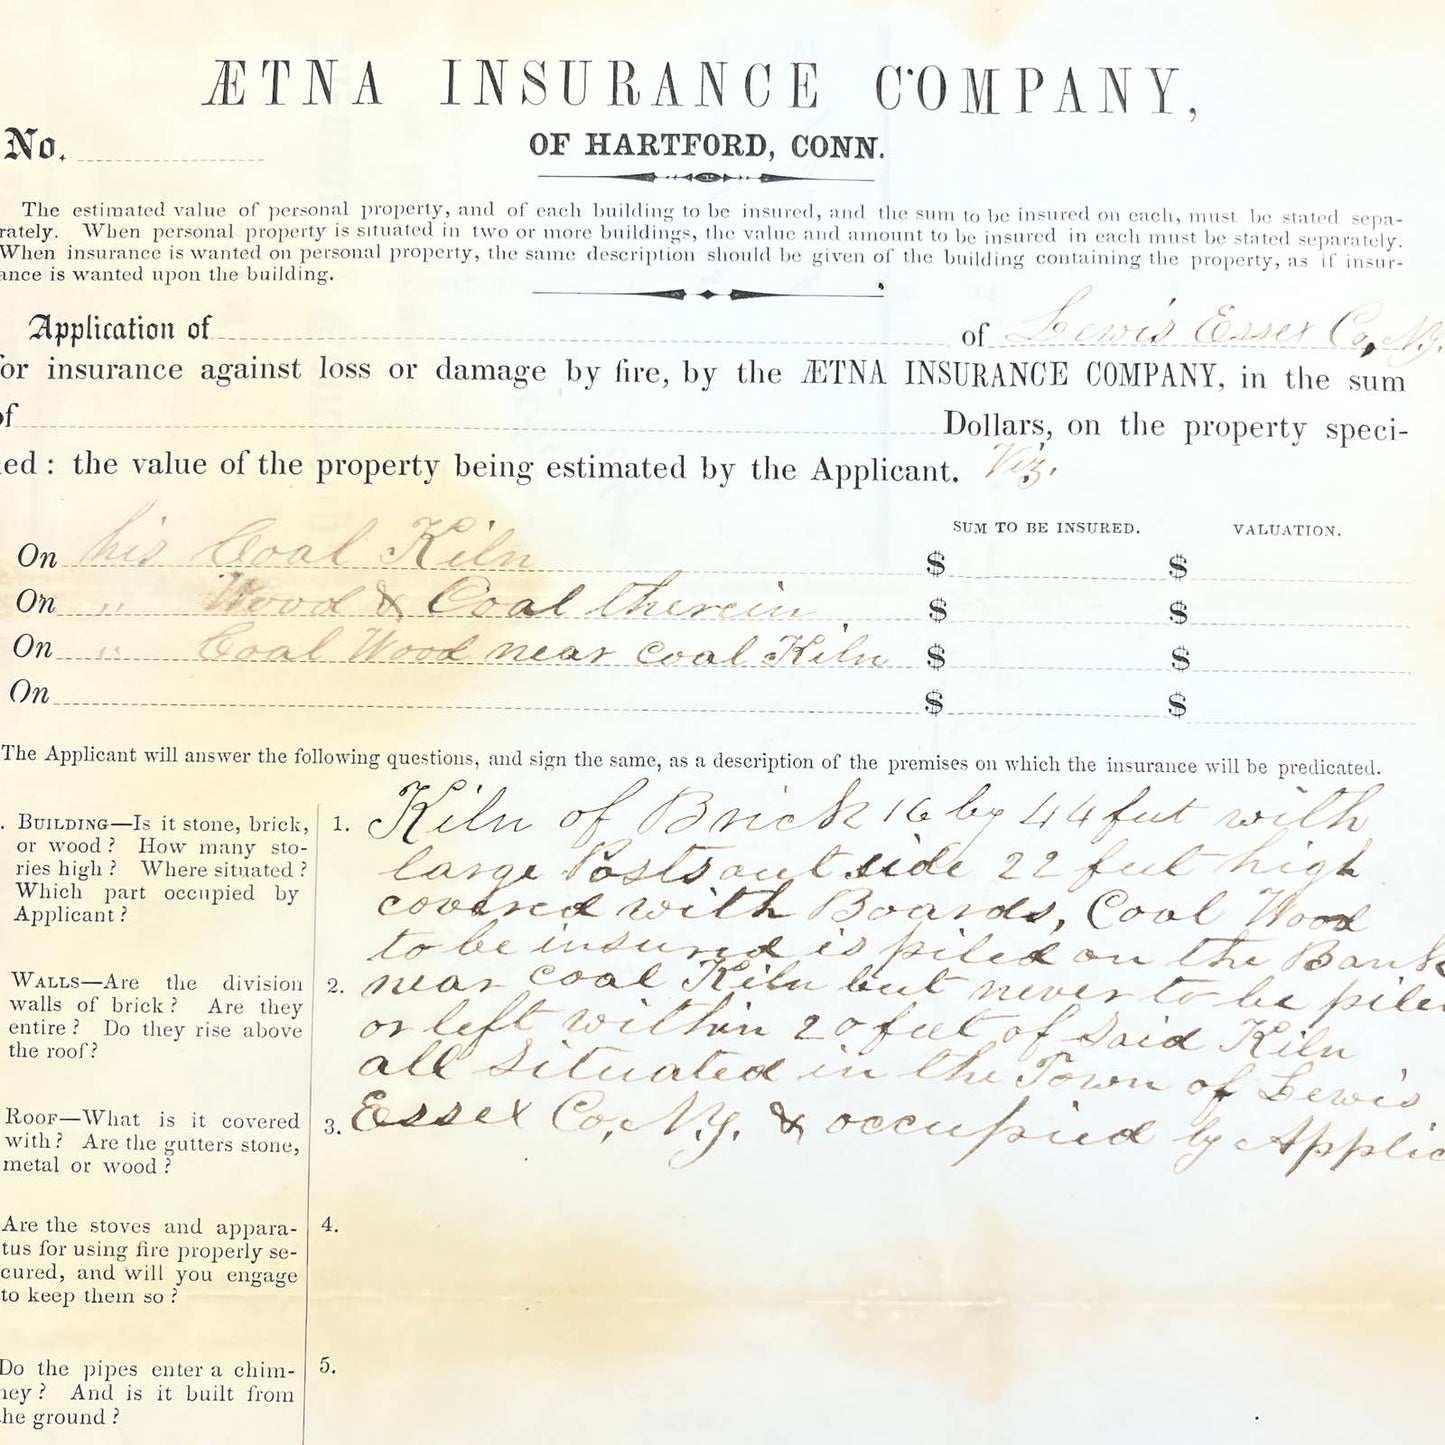 ÆTNA INSURANCE COMPANY,
No.
OF HARTFORD, CONN.
The estimated value of personal property, and of each building to be insured, and the sum to be insured on each, must be stated sepa-
rately. When personal property is situated in two or more buildings, the value and amount to be insured in each must be stated separately.
When insurance is wanted on personal property, the same description should be given of the building containing the property, as if insur-
ance is wanted upon the building.
Application of of Lewis Essex Co, N.Y.
for insurance against loss or damage by fire, by the ÆTNA INSURANCE COMPANY, in the sum
of Dollars, on the property speci-
ied: the value of the property being estimated by the Applicant. Viz.
SUM TO BE INSURED. VALUATION.
On his Coal Kiln $ $
On " Wood & Coal therein $ $
On " Coal Wood near coal Kiln $ $
On $ $
The Applicant will answer the following questions, and sign the same, as a description of the premises on which the insurance will be predicated.
. BUILDING—Is it stone, brick,
or wood? How many sto-
ries high? Where situated?
Which part occupied by
Applicant?
1. Kiln of Brick 16 by 44 feet with
large Posts out side 22 feet high
covered with Boards, Coal Wood
to be insured is piled on the Bank
WALLS—Are the division
walls of brick? Are they
entire? Do they rise above
the roof?
2. near coal Kiln but never to be piled
or left within 20 feet of Said Kiln
all Situated in the Town of Lewis
ROOF—What is it covered
with? Are the gutters stone,
metal or wood?
3. Essex Co, N.Y. & occupied by Applic
Are the stoves and appara-
tus for using fire properly se-
cured, and will you engage
to keep them so?
4.
Do the pipes enter a chim-
ney? And is it built from
the ground?
5.